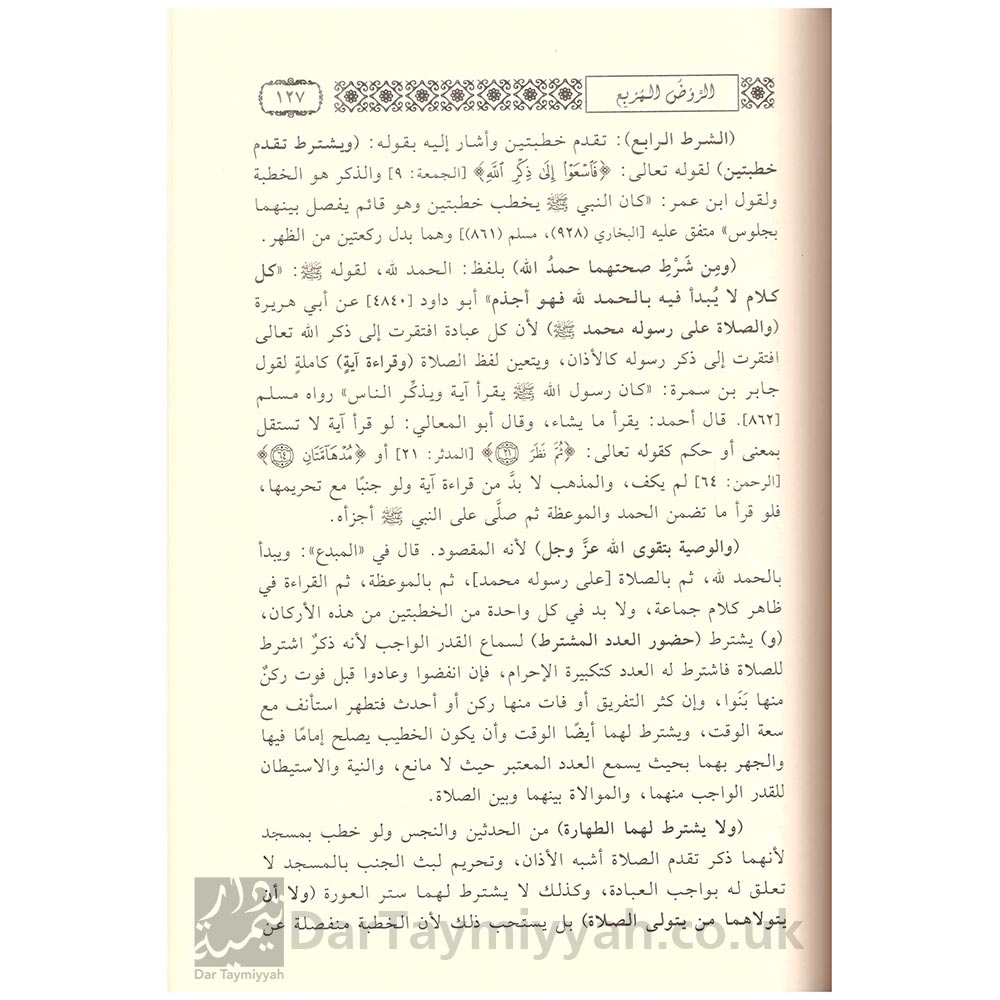 الروض المربع
١٢٧
(الشرط الرابع): تقدم خطبتين وأشار إليه بقوله: (ويشترط تقدم
خطبتين) لقوله تعالى: ﴿فَٱسْعَوْا۟ إِلَىٰ ذِكْرِ ٱللَّهِ﴾ [الجمعة: ٩] والذكر هو الخطبة
ولقول ابن عمر: «كان النبي ﷺ يخطب خطبتين وهو قائم يفصل بينهما
بجلوس» متفق عليه [البخاري (٩٢٨)، مسلم (٨٦١)] وهما بدل ركعتين من الظهر.
(ومِن شَرْطِ صحتهما حمدُ الله) بلفظ: الحمد لله، لقوله ﷺ: «كل
كلام لا يُبدأ فيه بالحمد لله فهو أجذم» أبو داود [٤٨٤٠] عن أبي هريرة
(والصلاة على رسوله محمد ﷺ) لأن كل عبادة افتقرت إلى ذكر الله تعالى
افتقرت إلى ذكر رسوله كالأذان، ويتعين لفظ الصلاة (وقراءة آيةٍ) كاملةٍ لقول
جابر بن سمرة: «كان رسول الله ﷺ يقرأ آية ويذكِّر الناس» رواه مسلم
[٨٦٢]. قال أحمد: يقرأ ما يشاء، وقال أبو المعالي: لو قرأ آية لا تستقل
بمعنى أو حكم كقوله تعالى: ﴿ثُمَّ نَظَرَ ٢١﴾ [المدثر: ٢١] أو ﴿مُدْهَآمَّتَانِ ٦٤﴾
[الرحمن: ٦٤] لم يكف، والمذهب لا بدَّ من قراءة آية ولو جنبًا مع تحريمها،
فلو قرأ ما تضمن الحمد والموعظة ثم صلَّى على النبي ﷺ أجزأه.
(والوصية بتقوى الله عزَّ وجل) لأنه المقصود. قال في «المبدع»: ويبدأ
بالحمد لله، ثم بالصلاة [على رسوله محمد]، ثم بالموعظة، ثم القراءة في
ظاهر كلام جماعة، ولا بد في كل واحدة من الخطبتين من هذه الأركان،
(و) يشترط (حضور العدد المشترط) لسماع القدر الواجب لأنه ذكرٌ اشترط
للصلاة فاشترط له العدد كتكبيرة الإحرام، فإن انفضوا وعادوا قبل فوت ركنٌ
منها بَنَوا، وإن كثر التفريق أو فات منها ركن أو أحدث فتطهر استأنف مع
سعة الوقت، ويشترط لهما أيضًا الوقت وأن يكون الخطيب يصلح إمامًا فيها
والجهر بهما بحيث يسمع العدد المعتبر حيث لا مانع، والنية والاستيطان
للقدر الواجب منهما، والموالاة بينهما وبين الصلاة.
(ولا يشترط لهما الطهارة) من الحدثين والنجس ولو خطب بمسجد
لأنهما ذكر تقدم الصلاة أشبه الأذان، وتحريم لبث الجنب بالمسجد لا
تعلق له بواجب العبادة، وكذلك لا يشترط لهما ستر العورة (ولا أن
يتولاهما من يتولى الصلاة) بل يستحب ذلك لأن الخطبة منفصلة عن
DarTaymiyyah.co.uk
دار تيمية
Dar Taymiyyah